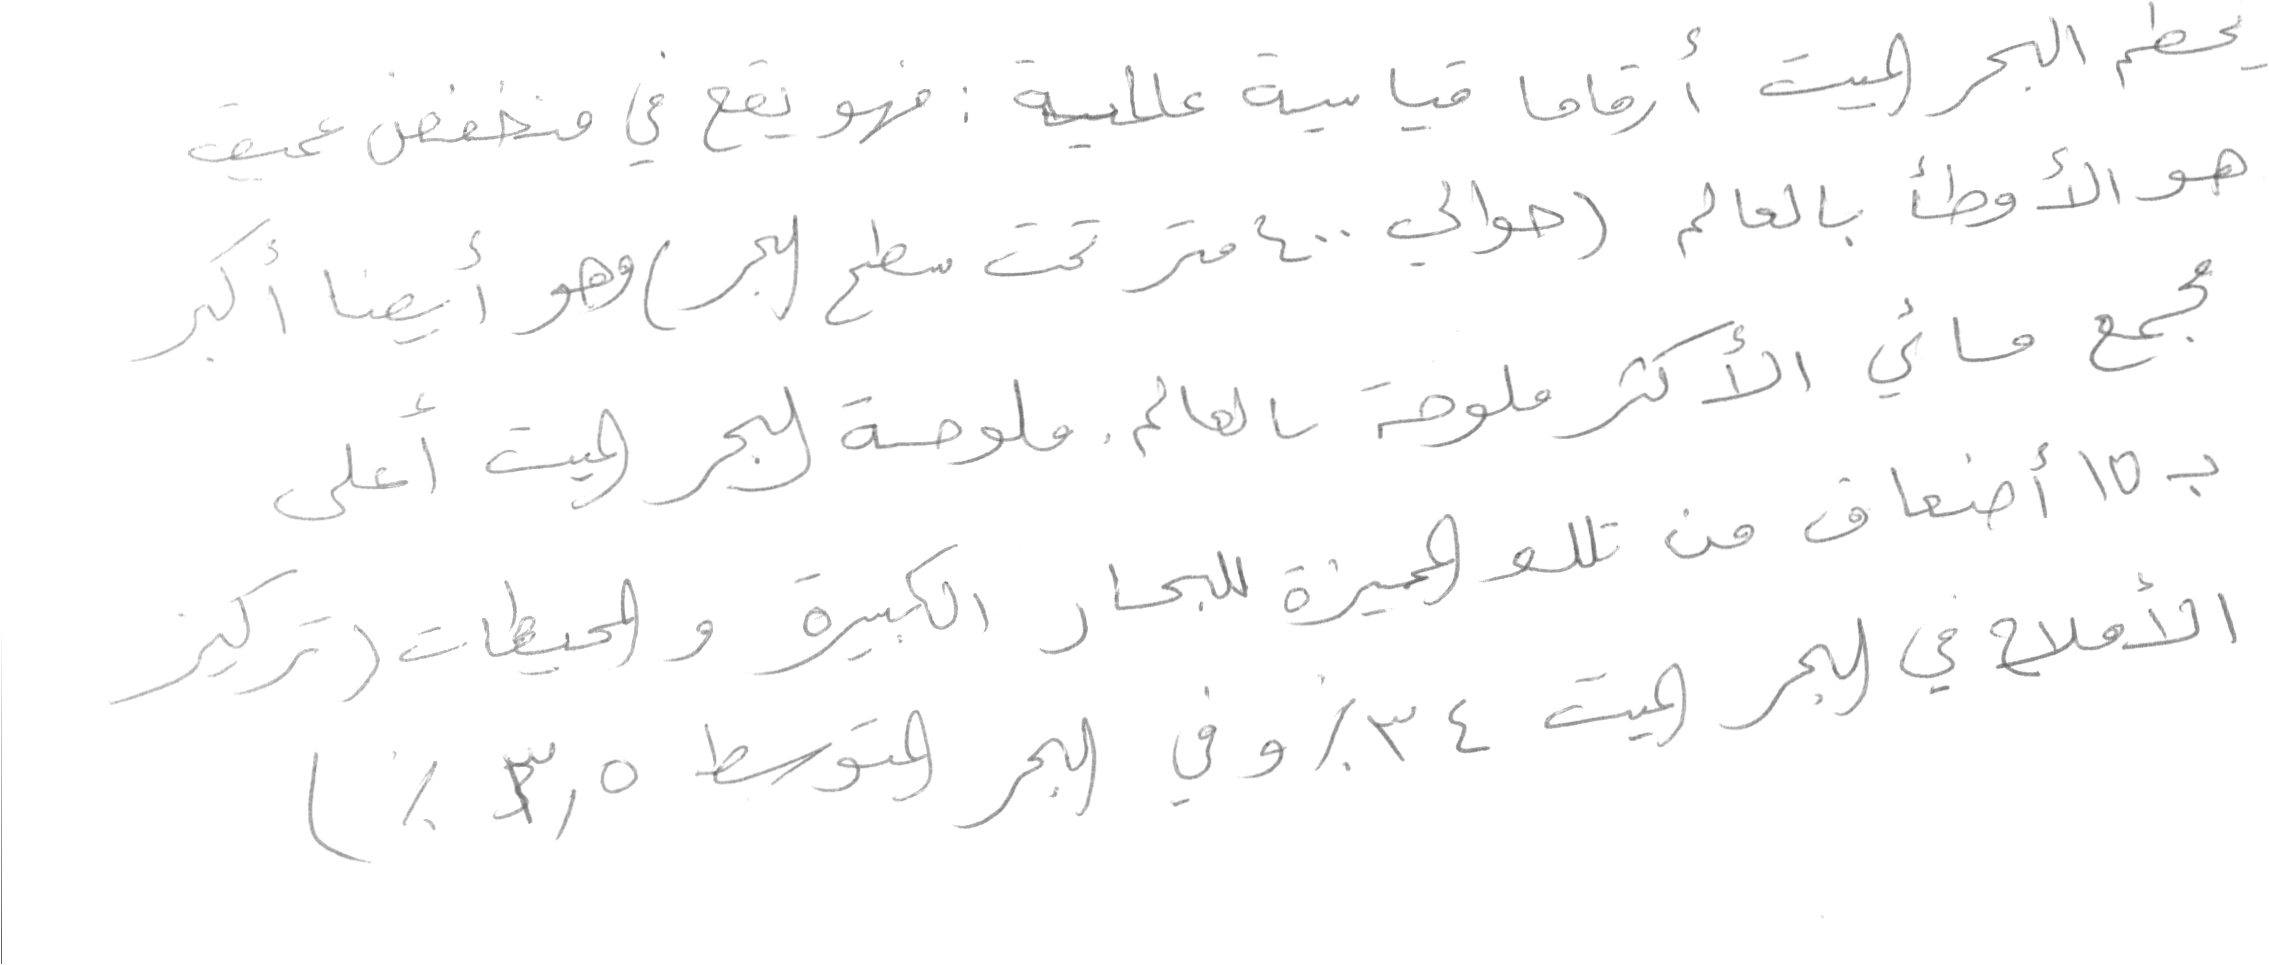 يحطم البحر الميت أرقاما قياسية عالمية : فهو يقع في منخفض عميق
هو الأوطأ بالعالم (حوالي ٤٠٠ متر تحت سطح البحر) وهو أيضا أكبر
مجمع مائي الأكثر ملوحة بالعالم. ملوحة البحر الميت أعلى
بـ ١٥ أضعاف من تلك المميزة للبحار الكبيرة و المحيطات (تركيز
الأملاح في البحر الميت ٣٤٪ و في البحر المتوسط ٣,٥ ٪)